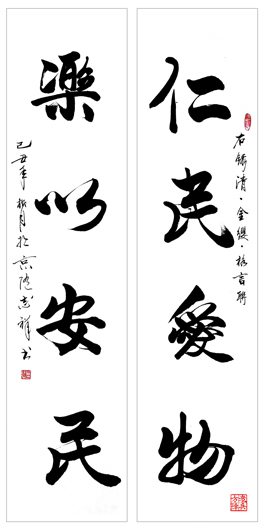 右錄清·金纓·格言聯
仁民愛物
樂以安民
己丑年 月於京 志祥书